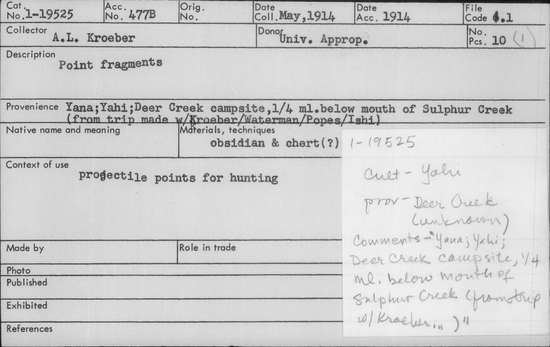 Cat. No. 1-19525 Acc. No. 477B Orig. No. Date Coll. May, 1914 Date Acc. 1914 File Code 4.1
Collector A.L. Kroeber Donor Univ. Approp. No. Pcs. 10 (1)
Description
Point fragments
Provenience Yana;Yahi;Deer Creek campsite,1/4 ml.below mouth of Sulphur Creek
(from trip made w/Kroeber/Waterman/Popes/Ishi)
Native name and meaning Materials, techniques
obsidian & chert(?)
Context of use
projectile points for hunting
Made by Role in trade
Photo
Published
Exhibited
References
1-19525
Cult - Yahi
prov - Deer Creek
(unknown)
Comments - "Yana; Yahi;
Deer Creek campsite, 1/4
ml. below mouth of
Sulphur Creek (from trip
w/Kroeber... )"